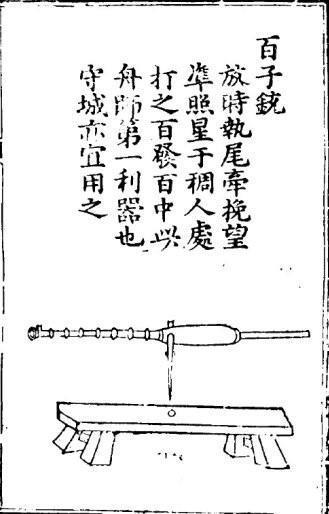 百子銃
放時執尾牽挽望
凖照星于稠人處
打之百發百中此
舟師第一利器也
守城亦宜用之